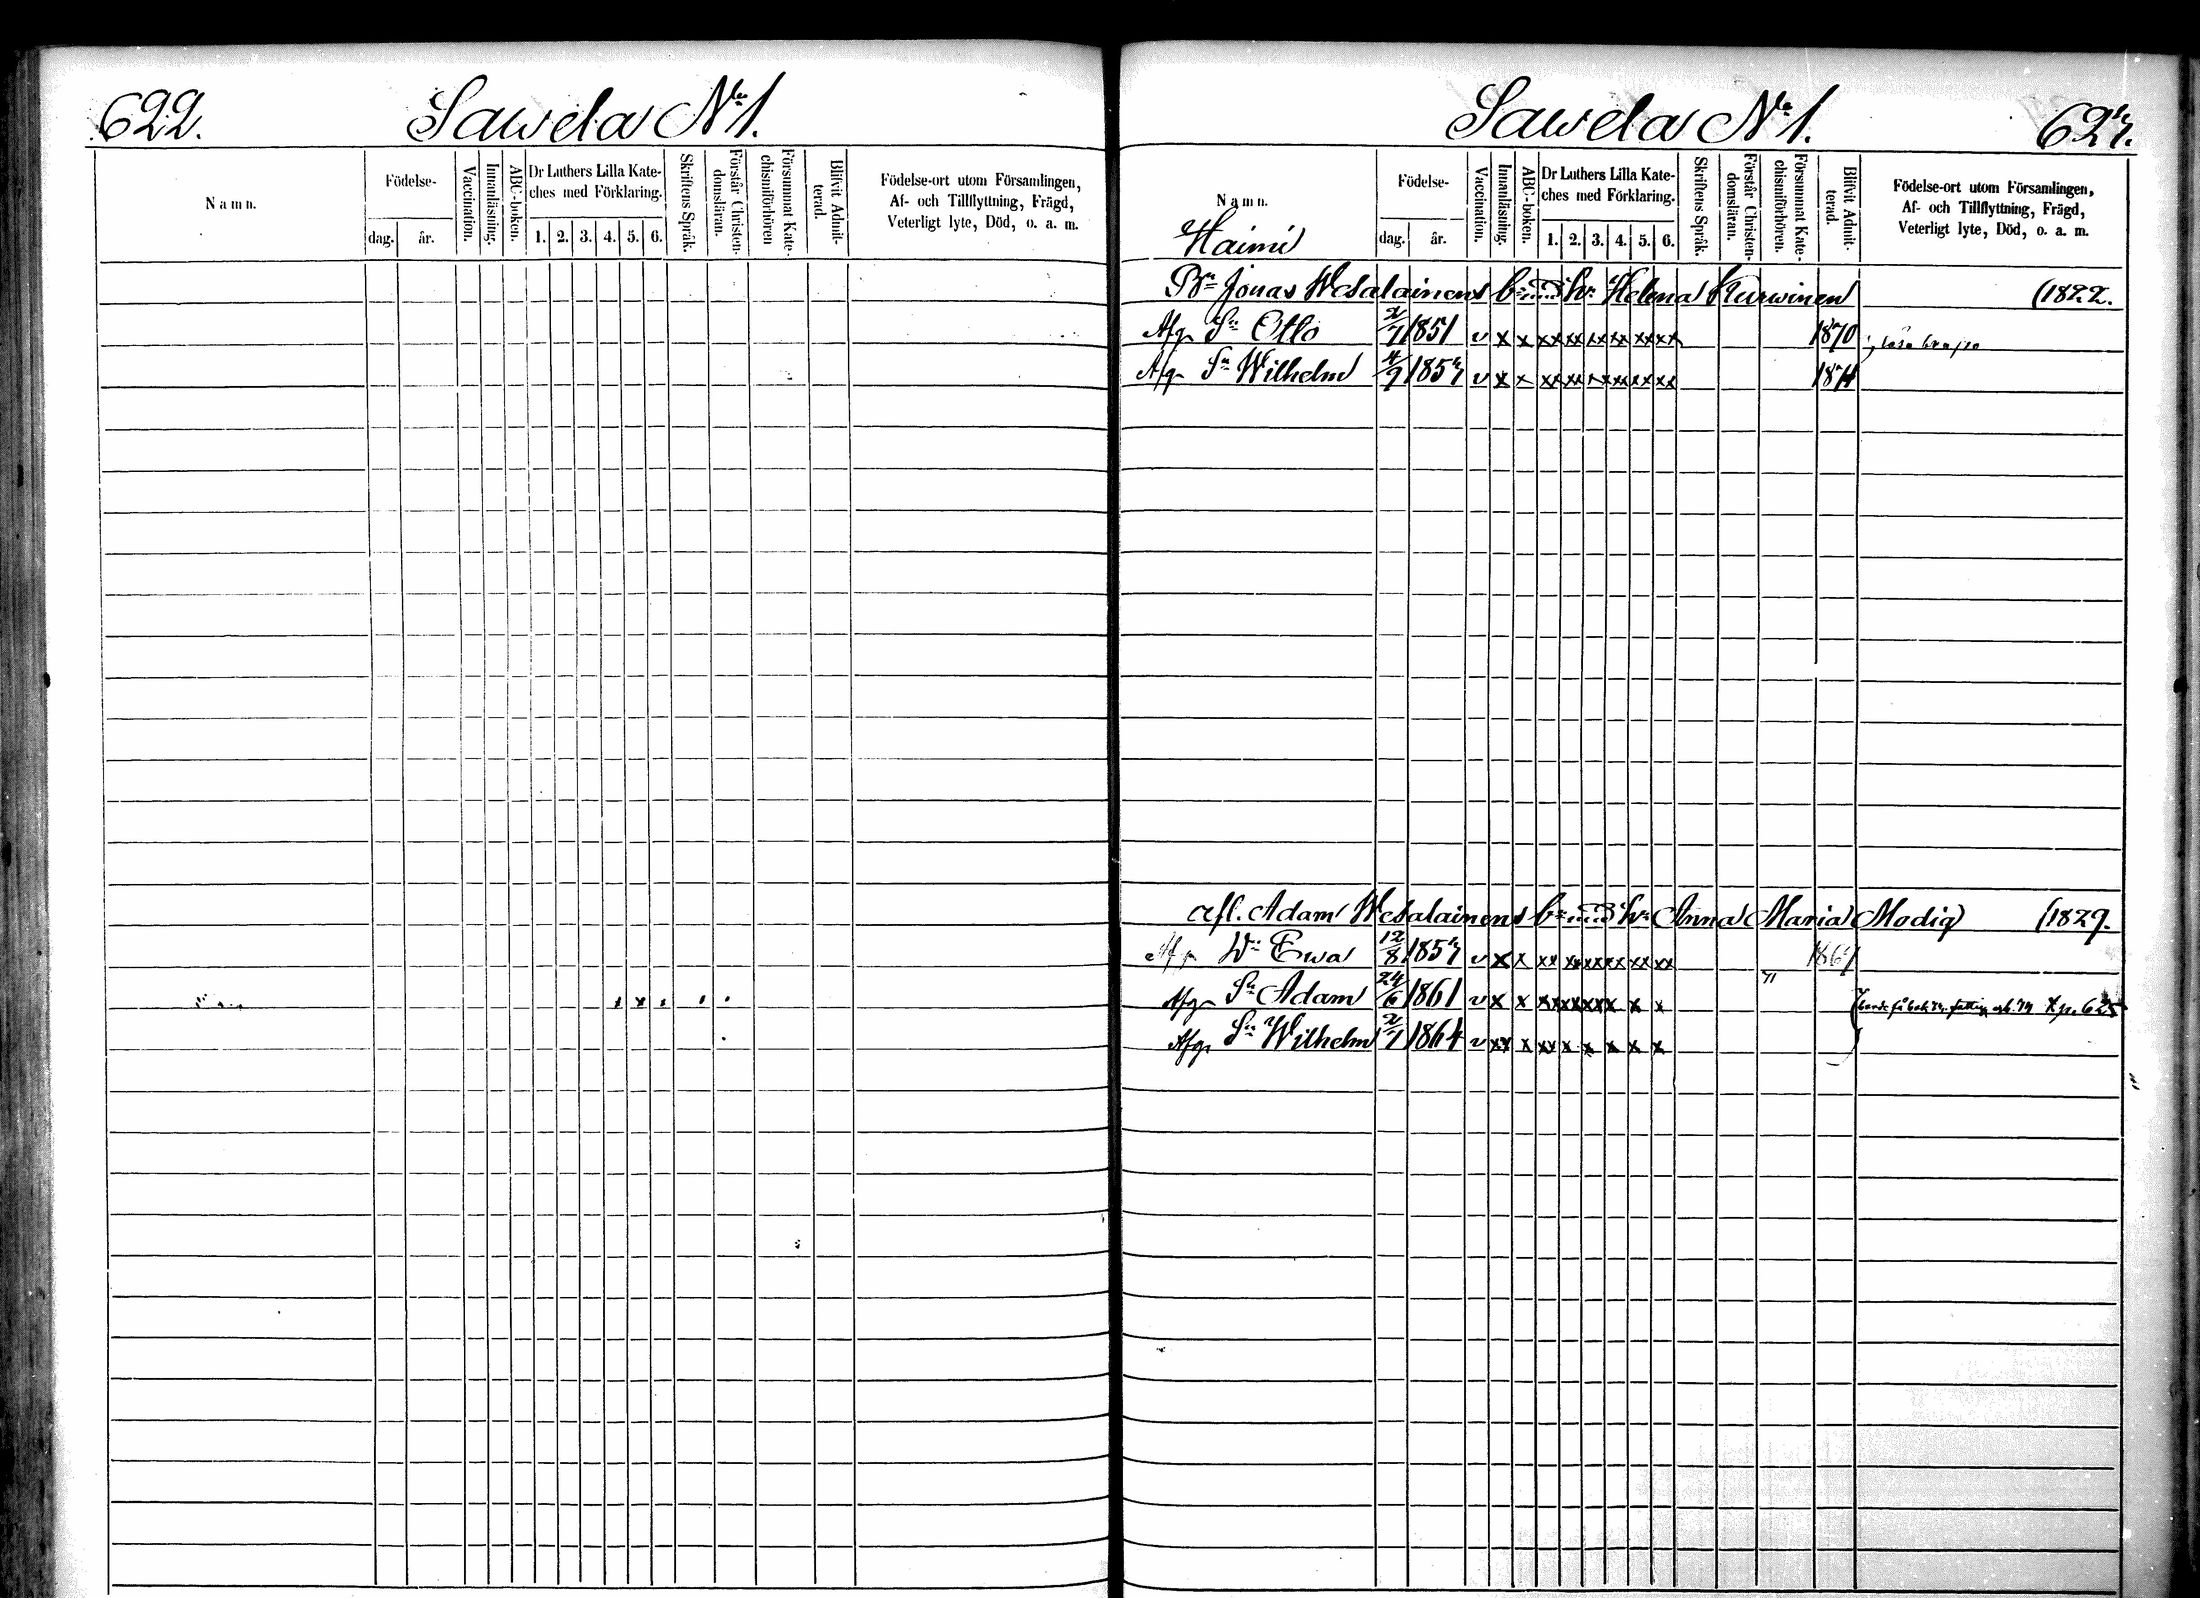 622.
Sawela No 1.
Namn.
Födelse-
dag.
år.
Vaccination.
Innanläsning.
ABC-boken.
Dr Luthers Lilla Kate-
ches med Förklaring.
1. 2. 3. 4. 5. 6.
Skriftens Språk.
Förstår Christen-
domsläran.
Försummat Kate-
chismiförhören
Blifvit Admit-
terad.
Födelse-ort utom Församlingen,
Af- och Tillflyttning, Frägd,
Veterligt lyte, Död, o. a. m.
Sawela No 1.
623.
Namn.
Haimi
Födelse-
dag.
år.
Vaccination.
Innanläsning.
ABC-boken.
Dr Luthers Lilla Kate-
ches med Förklaring.
1. 2. 3. 4. 5. 6.
Skriftens Språk.
Förstår Christen-
domsläran.
Försummat Kate-
chismiförhören.
Blifvit Admit-
terad.
Födelse-ort utom Församlingen,
Af- och Tillflyttning, Frägd,
Veterligt lyte, Död, o. a. m.
Bn Jonas Wesalainens b: h: Helena Kurwinen (1822.
Afg. Sn Otto 2/7 1851 v x x xx xx xx xx xx xx 1870
Afg. Sn Wilhelm 4/9 1853 v x x xx xx xx xx xx xx 1874
afl. Adam Wesalainens b: h: Anna Maria Modig (1829.
Afg. Dr Ewa 12/8 1853 v x x xx xx xx xx xx xx 1867
Afg. Sn Adam 24/6 1861 v x x xx xx xx xx x x p. 625
Afg. Sn Wilhelm 2/7 1864 v xx x xx x x x x x